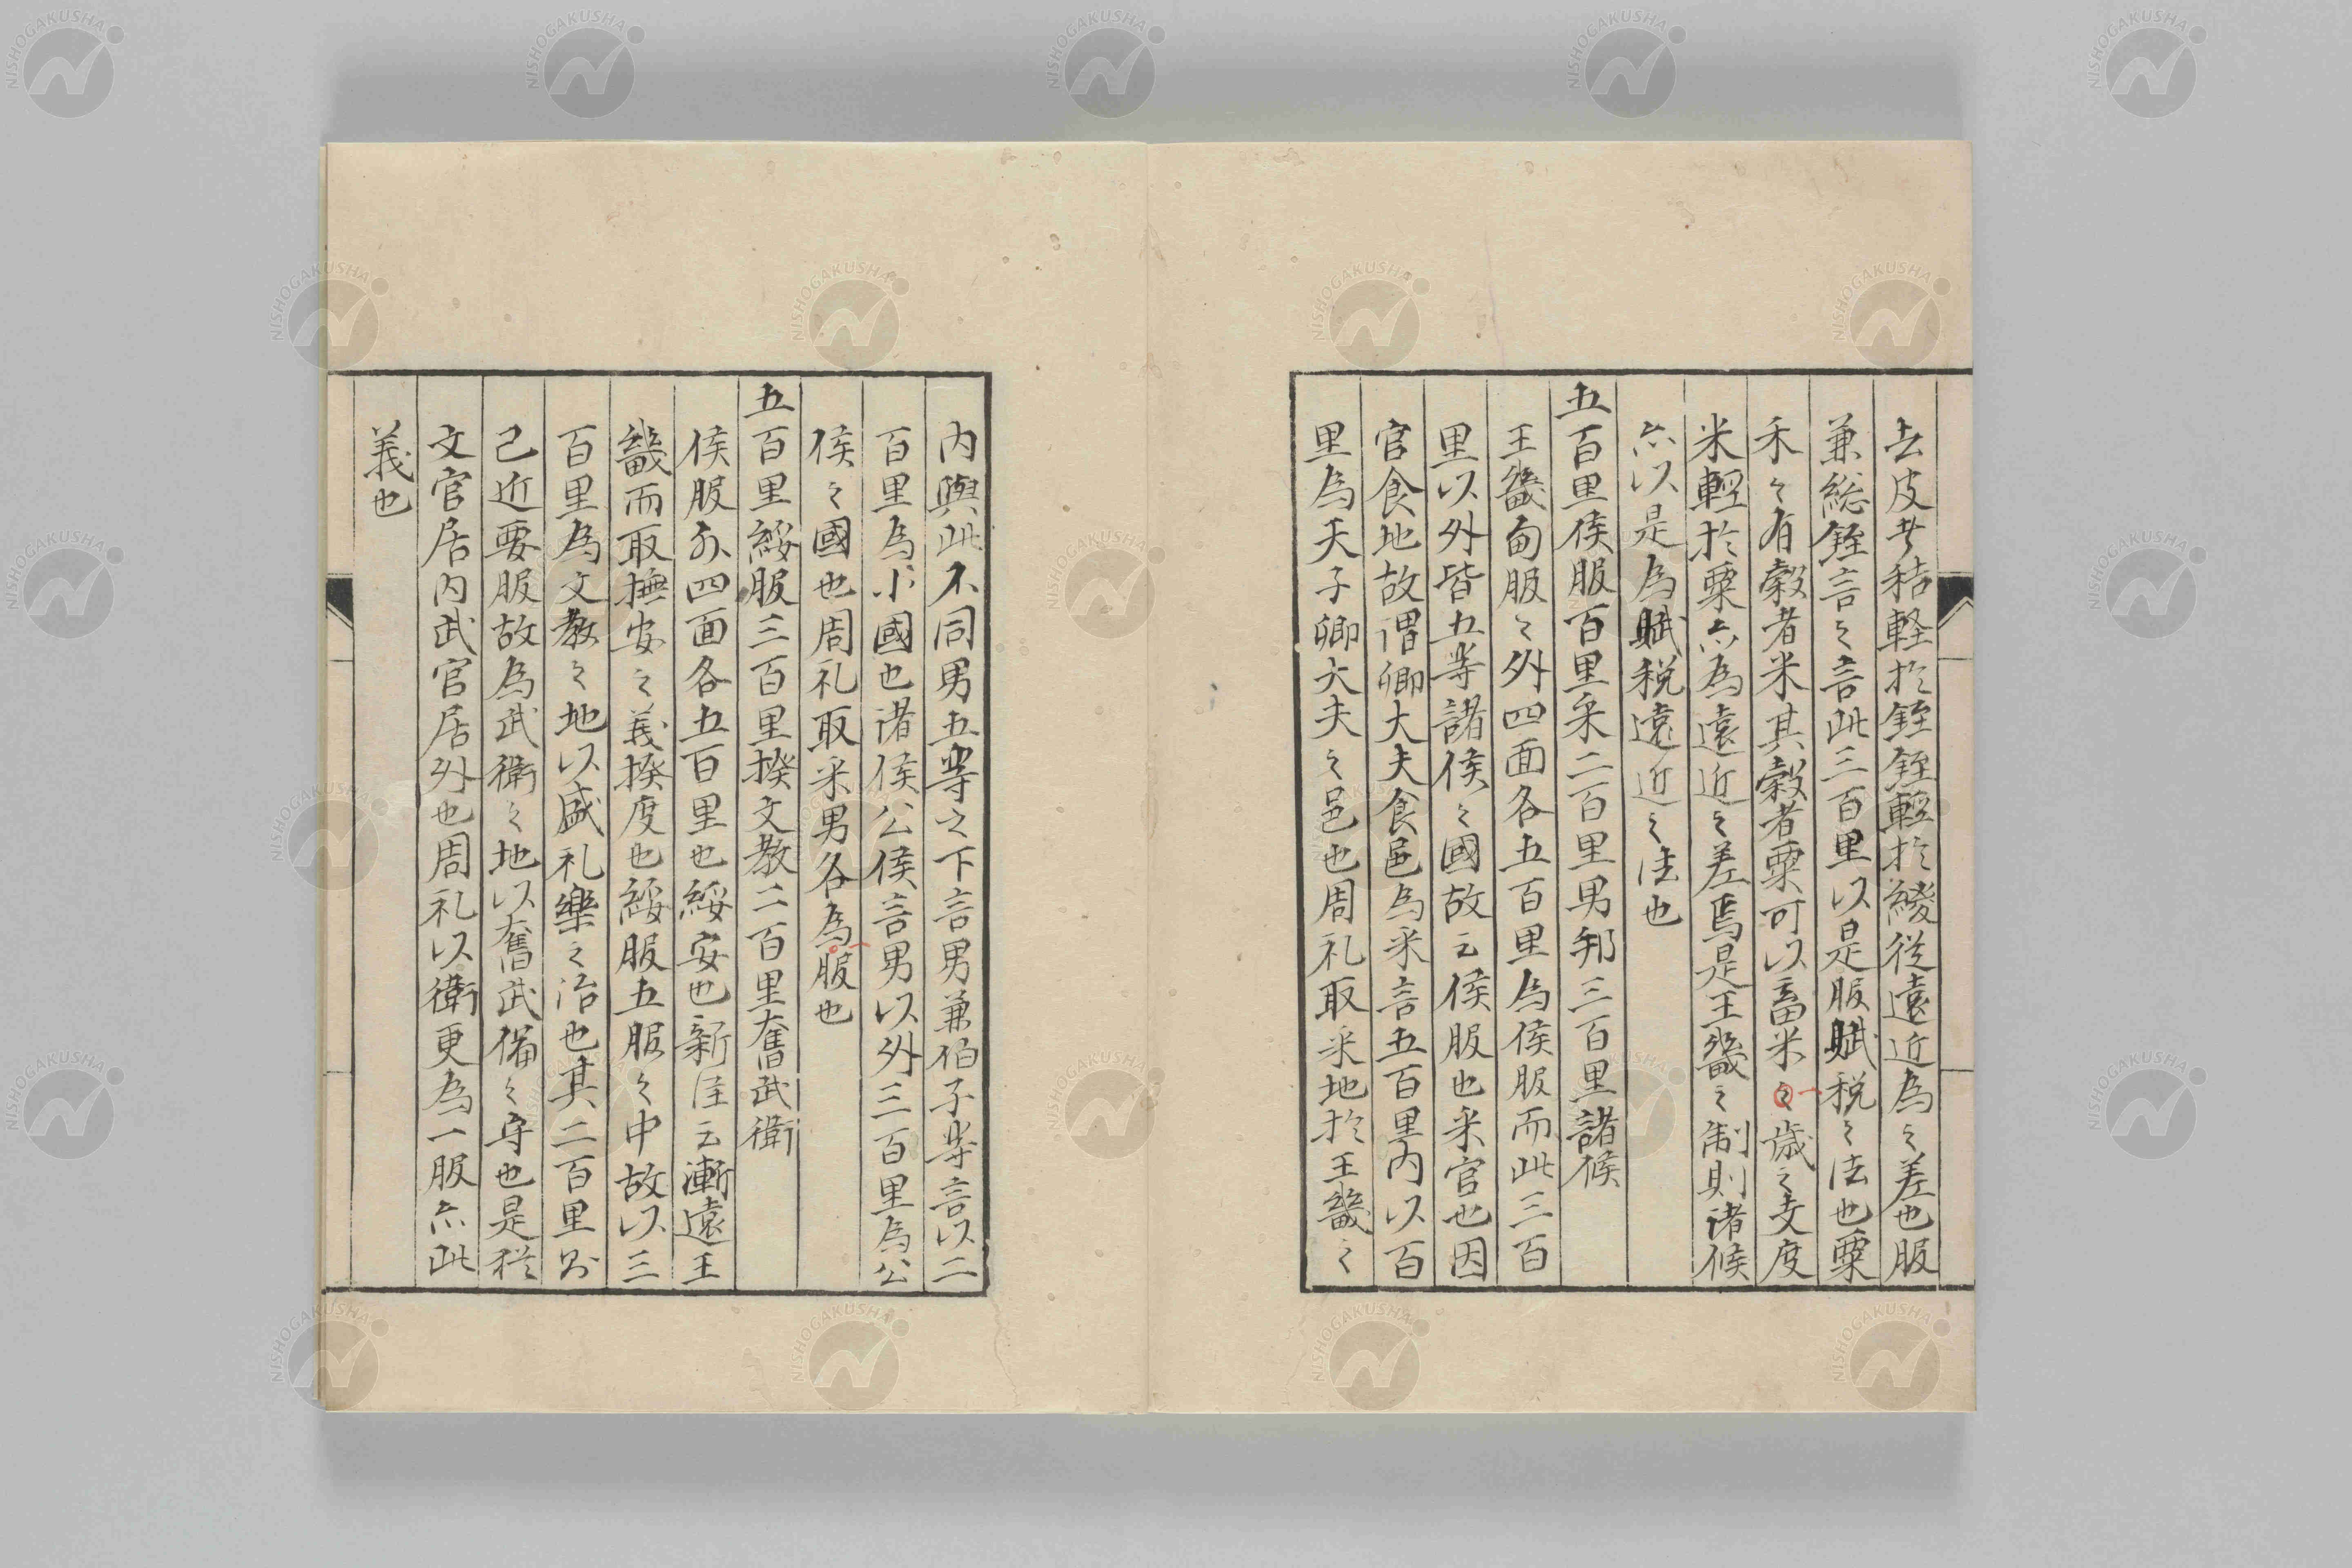 去皮者秸軽於銍銍輕於緵從遠近為之差也服
兼総銍言之言此三百里以是服賦税之法也粟
禾之有穀者米其穀者粟可以畜米之歳之支度
米輕於粟亦為遠近之差焉是王畿之制則诸候
亦以是為賦税遠近之法也
五百里侯服百里采二百里男邦三百里諸候
王畿甸服之外四面各五百里為侯服而此三百
里以外皆五等諸侯之國故云侯服也采官也因
官食地故謂卿大夫食邑為采言五百里内以百
里為天子卿大夫之邑也周礼取采地於王畿之
内與此不同男五等之下言男兼伯子等言以二
百里為小國也诸侯公侯言男以外三百里為公
侯之國也周礼取采男各為服也
五百里綏服三百里揆文教二百里奮武衛
侯服外四面各五百里也綏安也新注云漸遠王
畿而取撫安之義揆度也綏服五服之中故以三
百里為文教之地以盛礼樂之治也其二百里則
己近要服故為武衛之地以奮武備之守也是程
文官居内武官居外也周礼以衛更為一服亦此
義也
NISHOGAKUSHA